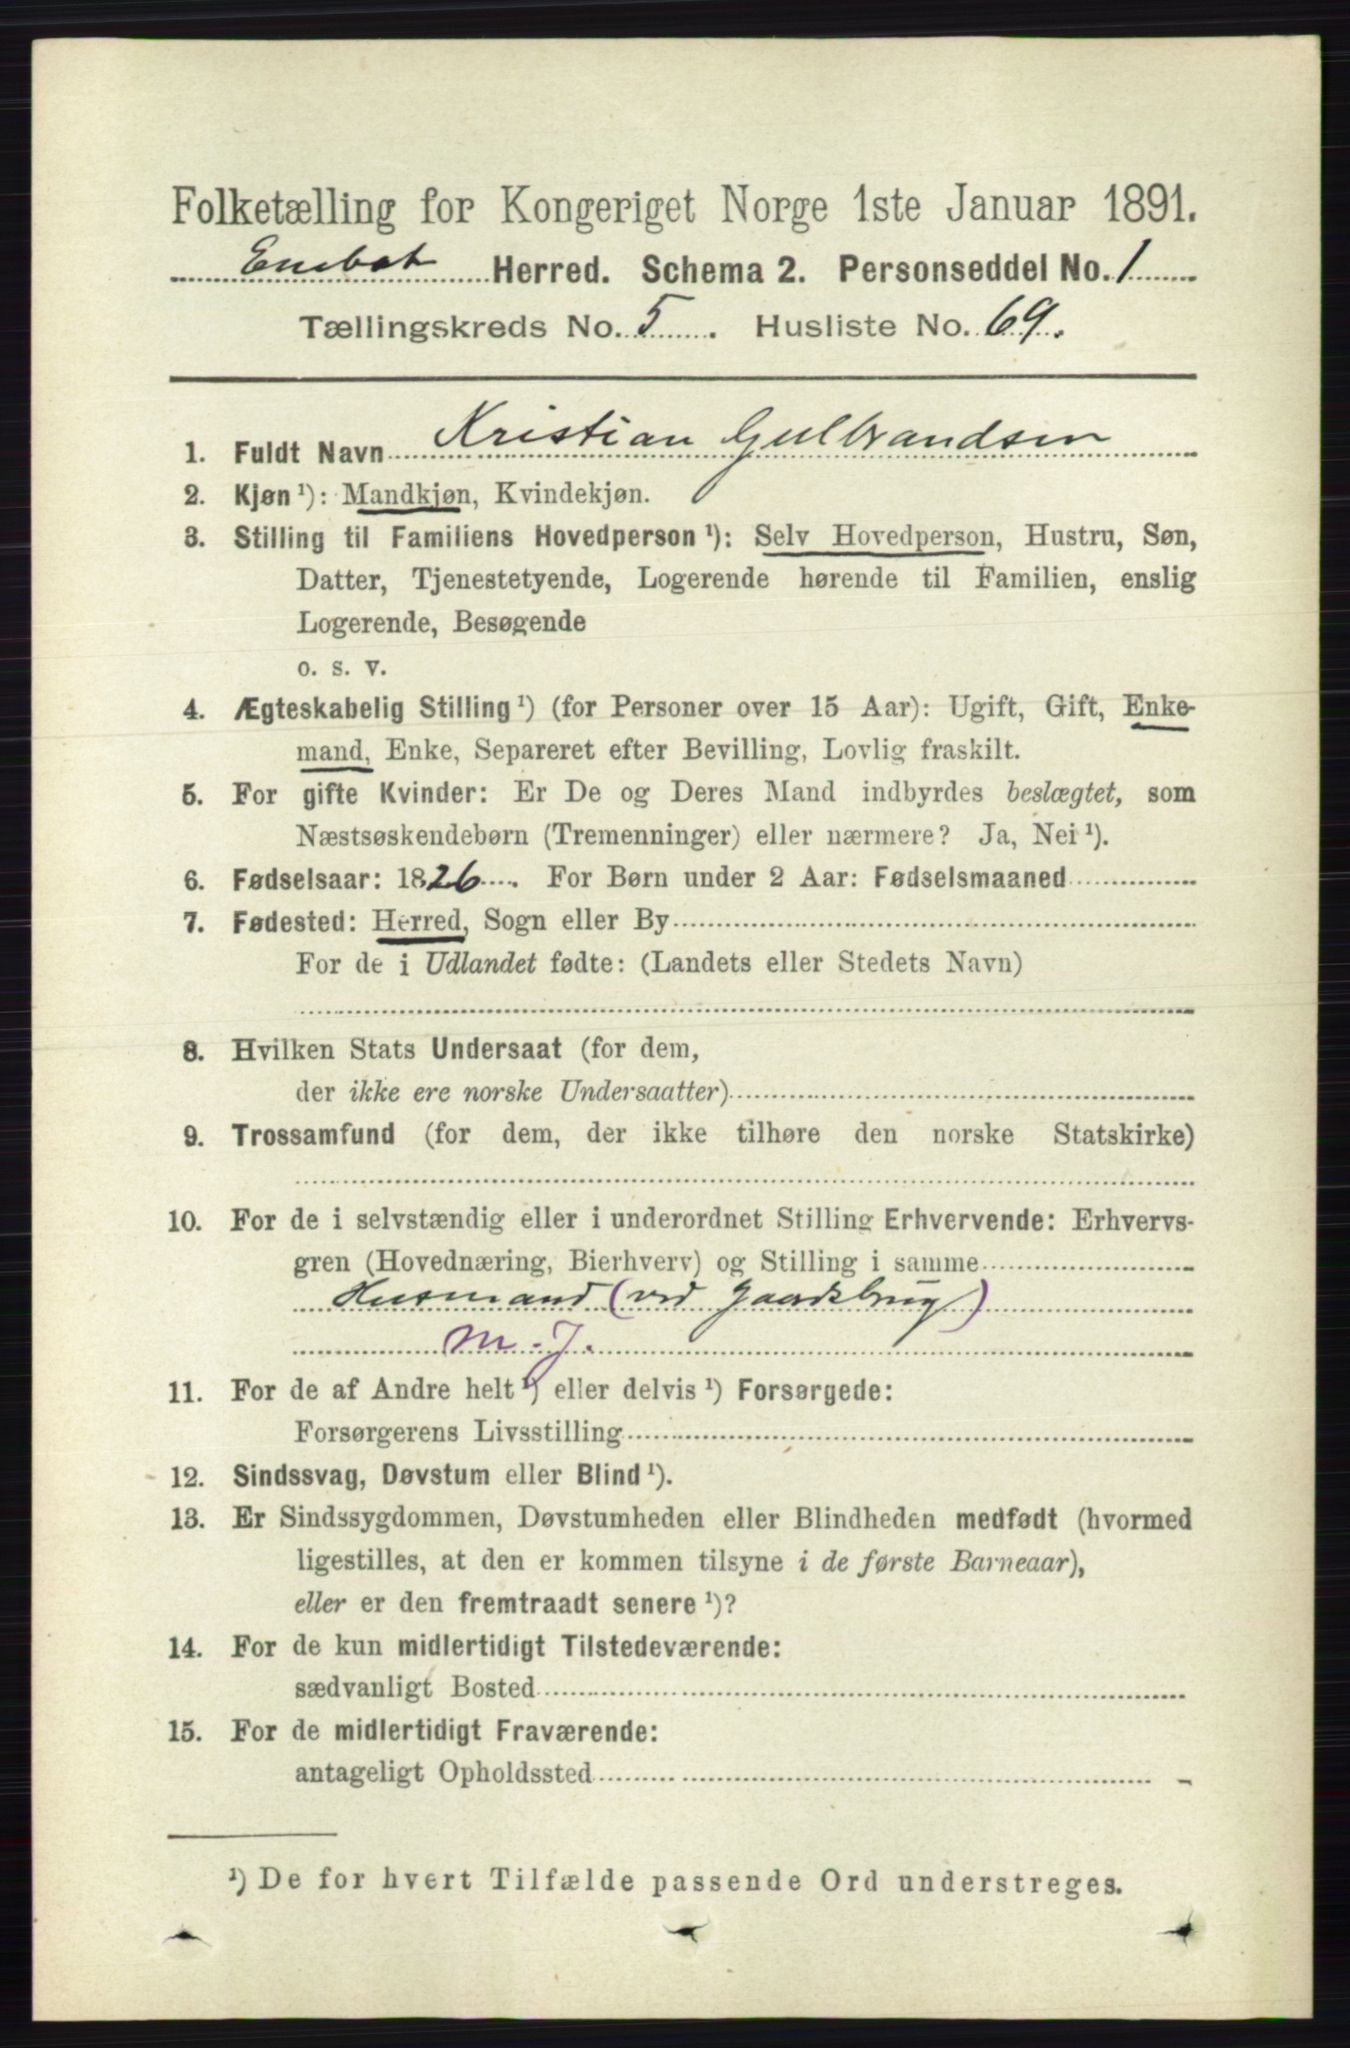 Folketælling for Kongeriget Norge 1ste Januar 1891.
Enebak Herred. Schema 2. Personseddel No. 1
Tællingskreds No. 5. Husliste No. 69.
1. Fuldt Navn Kristian Gulbrandsen
2. Kjøn ¹): Mandkjøn, Kvindekjøn.
3. Stilling til Familiens Hovedperson ¹): Selv Hovedperson, Hustru, Søn,
Datter, Tjenestetyende, Logerende hørende til Familien, enslig
Logerende, Besøgende
o. s. v.
4. Ægteskabelig Stilling ¹) (for Personer over 15 Aar): Ugift, Gift, Enke-
mand, Enke, Separeret efter Bevilling, Lovlig fraskilt.
5. For gifte Kvinder: Er De og Deres Mand indbyrdes beslægtet, som
Næstsøskendebørn (Tremenninger) eller nærmere? Ja, Nei ¹).
6. Fødselsaar: 1826. For Børn under 2 Aar: Fødselsmaaned
7. Fødested: Herred, Sogn eller By
For de i Udlandet fødte: (Landets eller Stedets Navn)
8. Hvilken Stats Undersaat (for dem,
der ikke ere norske Undersaatter)
9. Trossamfund (for dem, der ikke tilhøre den norske Statskirke)
10. For de i selvstændig eller i underordnet Stilling Erhvervende: Erhvervs-
gren (Hovednæring, Bierhverv) og Stilling i samme
Husmand (ved Gaardsbrug)
m. J.
11. For de af Andre helt ¹) eller delvis ¹) Forsørgede:
Forsørgerens Livsstilling
12. Sindssvag, Døvstum eller Blind ¹).
13. Er Sindssygdommen, Døvstumheden eller Blindheden medfødt (hvormed
ligestilles, at den er kommen tilsyne i de første Barneaar),
eller er den fremtraadt senere ¹)?
14. For de kun midlertidigt Tilstedeværende:
sædvanligt Bosted
15. For de midlertidigt Fraværende:
antageligt Opholdssted
¹) De for hvert Tilfælde passende Ord understreges.